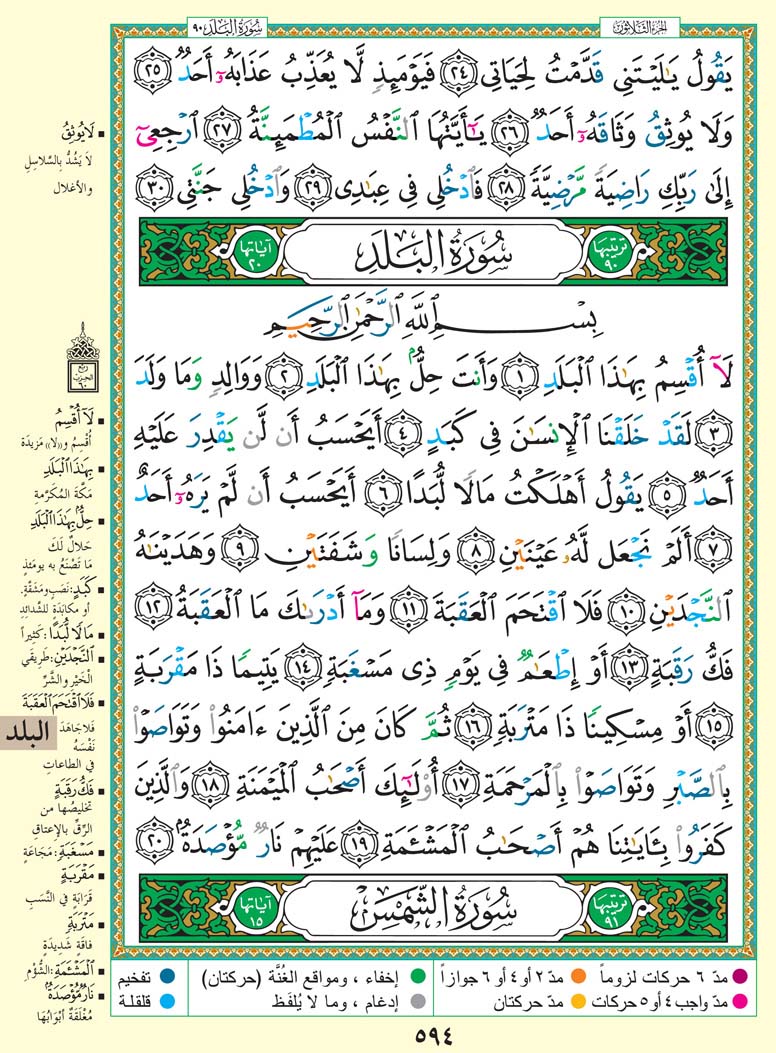 الجزء الثلاثون
سورة البلد ٩٠
يَقُولُ يَٰلَيْتَنِى قَدَّمْتُ لِحَيَاتِى ٢٤ فَيَوْمَئِذٍ لَّا يُعَذِّبُ عَذَابَهُۥٓ أَحَدٌ ٢٥
وَلَا يُوثِقُ وَثَاقَهُۥٓ أَحَدٌ ٢٦ يَٰٓأَيَّتُهَا ٱلنَّفْسُ ٱلْمُطْمَئِنَّةُ ٢٧ ٱرْجِعِىٓ
إِلَىٰ رَبِّكِ رَاضِيَةً مَّرْضِيَّةً ٢٨ فَٱدْخُلِى فِى عِبَٰدِى ٢٩ وَٱدْخُلِى جَنَّتِى ٣٠
ترتيبها ٩٠ سُورَةُ البَلَدِ آياتها ٢٠
بِسْمِ ٱللَّهِ ٱلرَّحْمَٰنِ ٱلرَّحِيمِ
لَآ أُقْسِمُ بِهَٰذَا ٱلْبَلَدِ ١ وَأَنتَ حِلٌّۢ بِهَٰذَا ٱلْبَلَدِ ٢ وَوَالِدٍ وَمَا وَلَدَ
٣ لَقَدْ خَلَقْنَا ٱلْإِنسَٰنَ فِى كَبَدٍ ٤ أَيَحْسَبُ أَن لَّن يَقْدِرَ عَلَيْهِ
أَحَدٌ ٥ يَقُولُ أَهْلَكْتُ مَالًا لُّبَدًا ٦ أَيَحْسَبُ أَن لَّمْ يَرَهُۥٓ أَحَدٌ
٧ أَلَمْ نَجْعَل لَّهُۥ عَيْنَيْنِ ٨ وَلِسَانًا وَشَفَتَيْنِ ٩ وَهَدَيْنَٰهُ
ٱلنَّجْدَيْنِ ١٠ فَلَا ٱقْتَحَمَ ٱلْعَقَبَةَ ١١ وَمَآ أَدْرَىٰكَ مَا ٱلْعَقَبَةُ ١٢
فَكُّ رَقَبَةٍ ١٣ أَوْ إِطْعَٰمٌ فِى يَوْمٍ ذِى مَسْغَبَةٍ ١٤ يَتِيمًا ذَا مَقْرَبَةٍ
١٥ أَوْ مِسْكِينًا ذَا مَتْرَبَةٍ ١٦ ثُمَّ كَانَ مِنَ ٱلَّذِينَ ءَامَنُوا۟ وَتَوَاصَوْا۟
بِٱلصَّبْرِ وَتَوَاصَوْا۟ بِٱلْمَرْحَمَةِ ١٧ أُو۟لَٰٓئِكَ أَصْحَٰبُ ٱلْمَيْمَنَةِ ١٨ وَٱلَّذِينَ
كَفَرُوا۟ بِـَٔايَٰتِنَا هُمْ أَصْحَٰبُ ٱلْمَشْـَٔمَةِ ١٩ عَلَيْهِمْ نَارٌ مُّؤْصَدَةٌۢ ٢٠
ترتيبها ٩١ سُورَةُ الشَّمْسِ آياتها ١٥
لَا يُوثِقُ
لَا يَشُدُّ بِالسَّلَاسِلِ
والأغلال
ربع
الحزب
٦٠
لَآ أُقْسِمُ
أُقْسِمُ و«لا» مَزيدَة
بِهَٰذَا ٱلْبَلَدِ
مَكَّةَ المُكَرَّمةِ
حِلٌّۢ بِهَٰذَا ٱلْبَلَدِ
حَلَالٌ لَكَ
مَا تَصْنَعُ به يومَئذٍ
كَبَدٍ: نَصَبٍ ومَشَقَّةٍ،
أو مكابَدَةٍ للشَّدائِدِ
مَالًا لُّبَدًا: كَثِيراً
ٱلنَّجْدَيْنِ: طَرِيقَي
الخَيْرِ والشَّرِّ
فَلَا ٱقْتَحَمَ ٱلْعَقَبَةَ
فَلا جَاهَدَ
نَفْسَهُ
في الطاعاتِ
فَكُّ رَقَبَةٍ
تخليصُها من
الرِّقِّ بالإعتاقِ
مَسْغَبَةٍ: مَجَاعَةٍ
مَقْرَبَةٍ
قَرَابَةٍ في النَّسَبِ
مَتْرَبَةٍ
فاقَةٍ شَديدَةٍ
ٱلْمَشْـَٔمَةِ: الشُّؤْمِ
نَارٌ مُّؤْصَدَةٌۢ
مُغْلَقَةٌ أبْوابُهَا
البلد
مدّ ٦ حركات لزوماً مدّ ٢ أو ٤ أو ٦ جوازاً إخفاء ، ومواقع الغُنَّة (حركتان) تفخيم
مدّ واجب ٤ أو ٥ حركات مدّ حركتان إدغام ، وما لا يُلفَظ قلقلة
٥٩٤